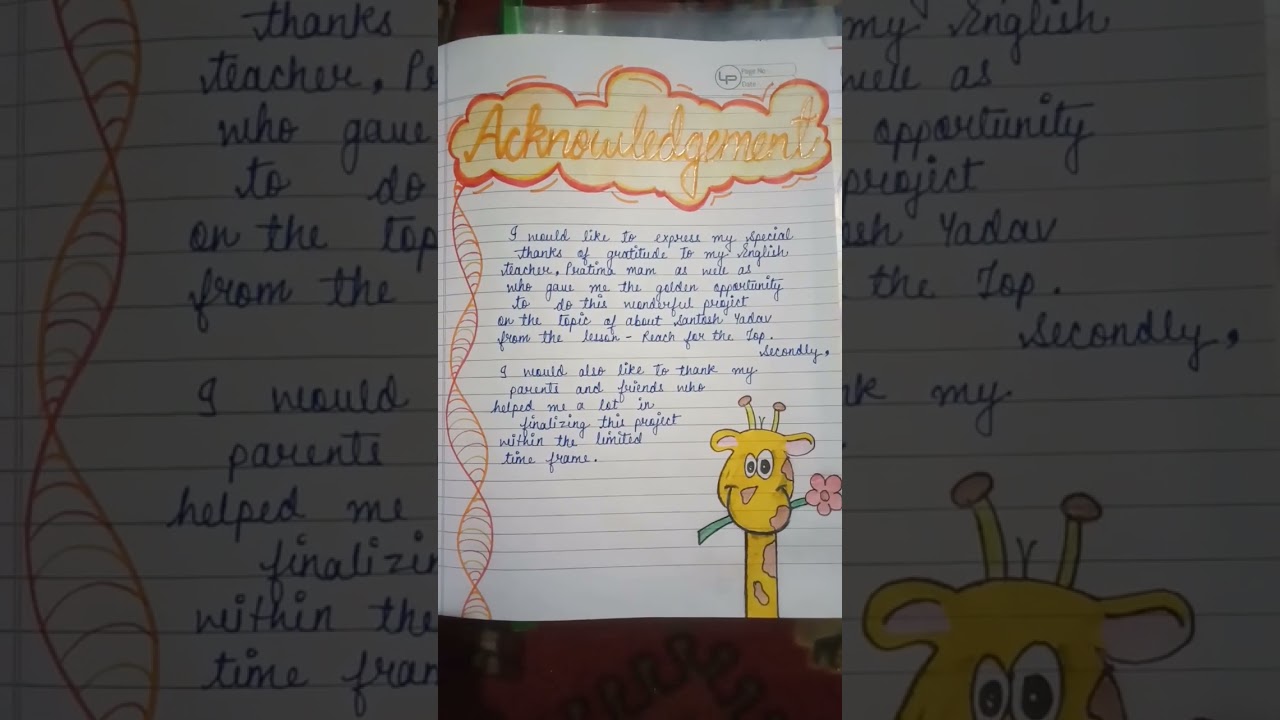 LP
Page No.
Date
Acknowledgement
I would like to express my special
thanks of gratitude to my English
teacher, Pratima mam as well as
who gave me the golden opportunity
to do this wonderful project
on the topic of about Santosh Yadav
from the lesson - Reach for the Top.
Secondly,
I would also like to thank my
parents and friends who
helped me a lot in
finalizing this project
within the limited
time frame.